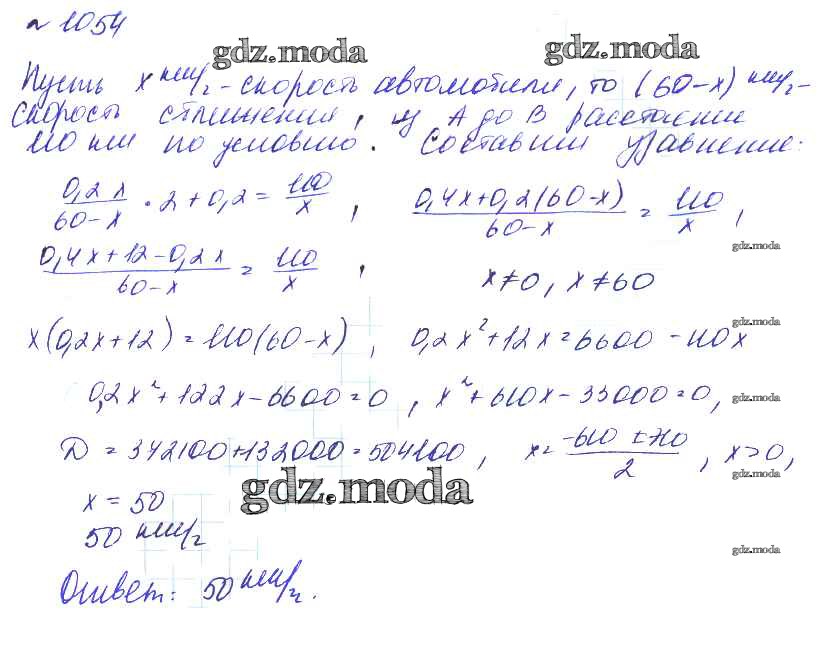 № 1054
gdz.moda gdz.moda
Пусть x км/г - скорость автомобиля, то (60-x) км/г -
скорость сближения, из A до B расстояние
110 км по условию. Составим уравнение:
0,2x/60-x · 2+0,2 = 110/x , 0,4x+0,2(60-x)/60-x = 110/x ,
gdz.moda
0,4x+12-0,2x/60-x = 110/x , x≠0, x≠60
gdz.moda
x(0,2x+12) = 110(60-x) , 0,2x²+12x=6600-110x
0,2x²+122x-6600=0 , x²+610x-33000=0,
gdz.moda
D = 372100+132000=504100 , x= -610±710/2 , x>0,
gdz.moda
gdz.moda
x = 50
50 км/г
gdz.moda
Ответ: 50 км/г.